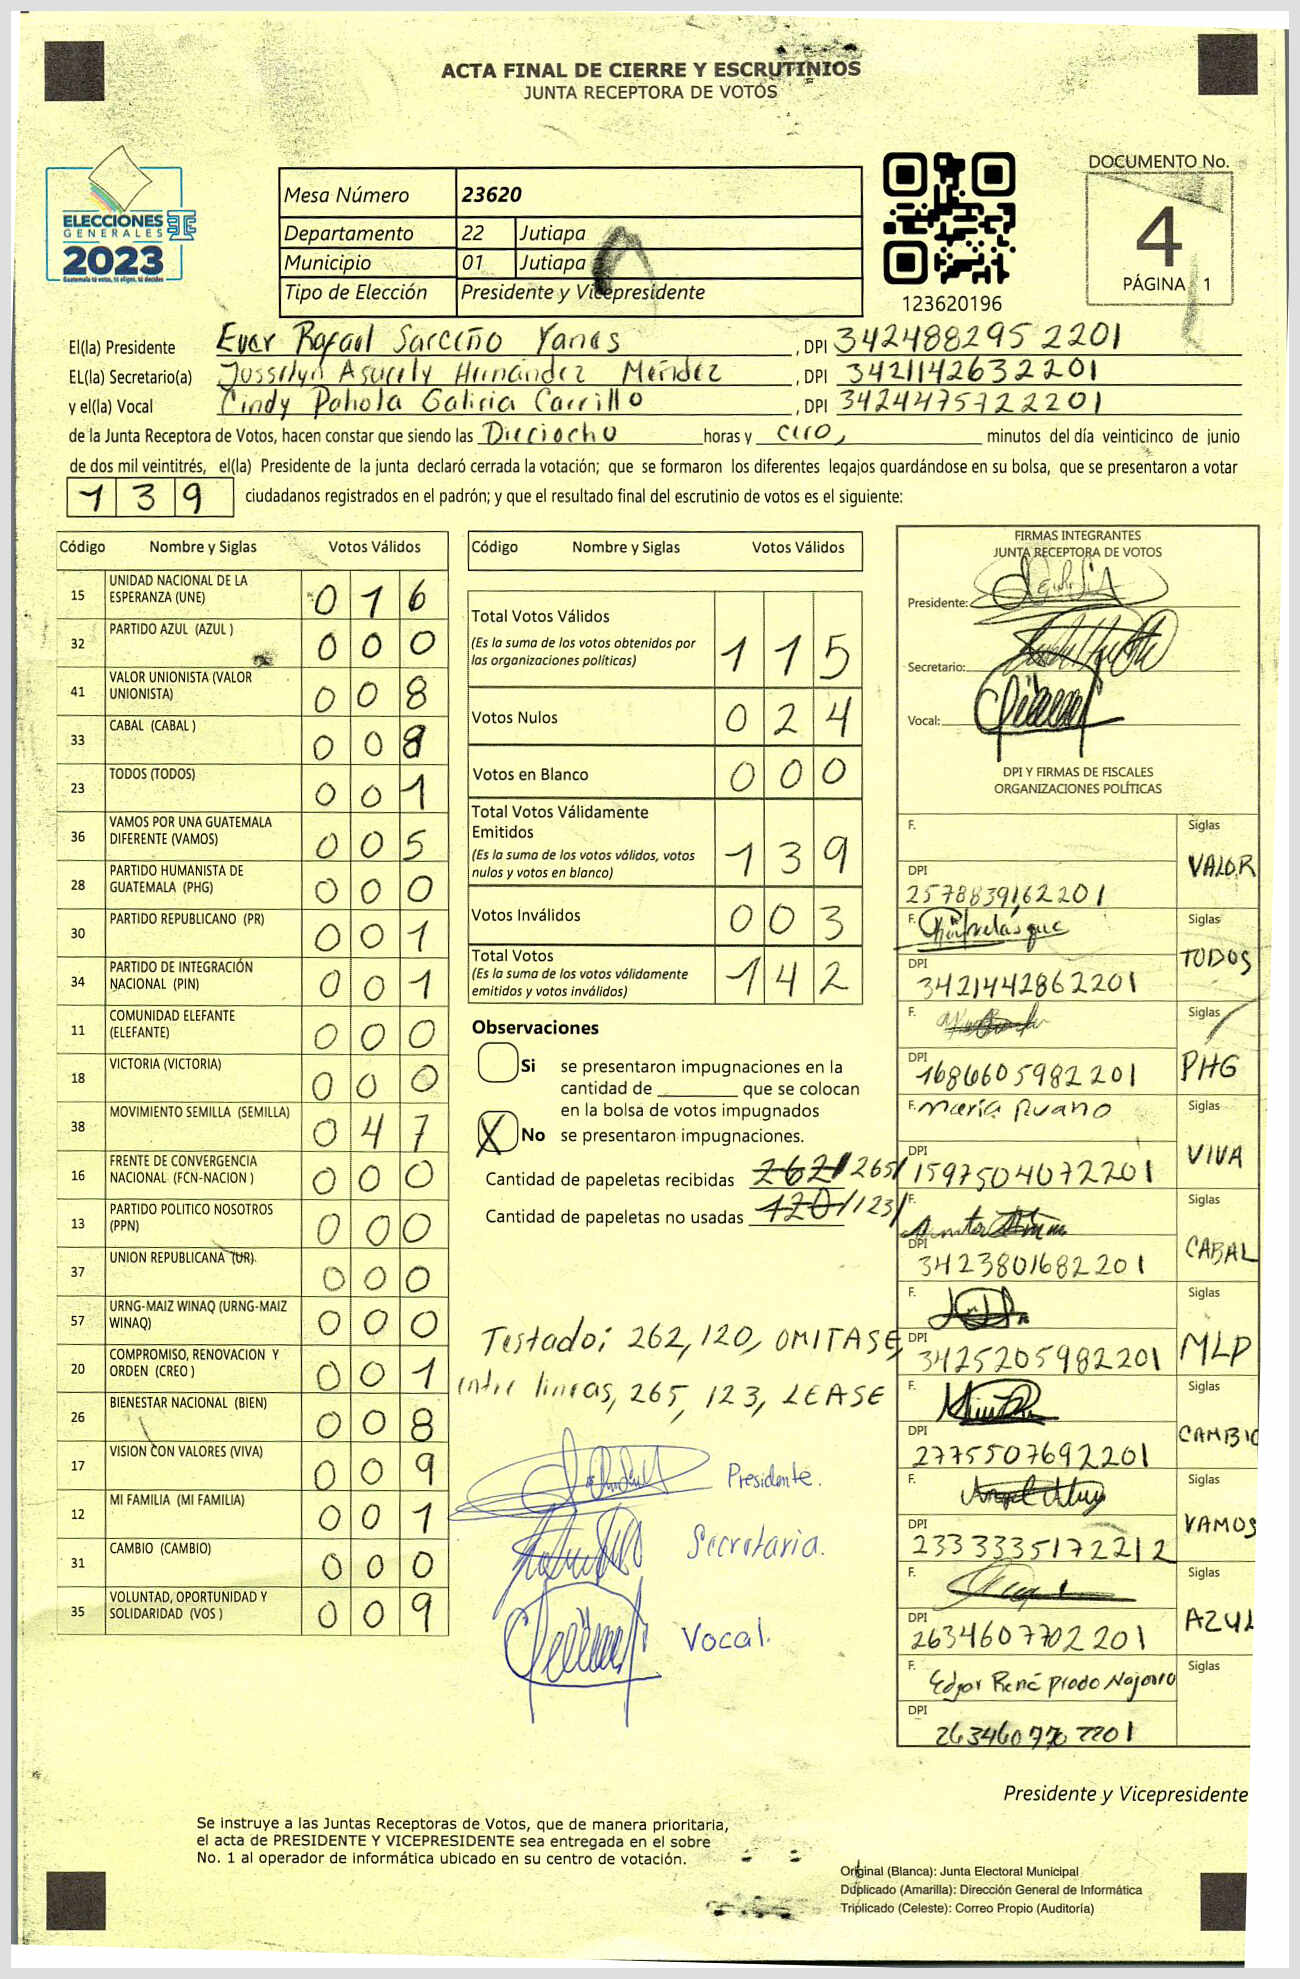 ACTA FINAL DE CIERRE Y ESCRUTINIOS
JUNTA RECEPTORA DE VOTOS
ELECCIONES
GENERALES
2023
Guatemala tú votas, tú eliges, tú decides
Mesa Número 23620
Departamento 22 Jutiapa
Municipio 01 Jutiapa
Tipo de Elección Presidente y Vicepresidente
123620196
DOCUMENTO No.
4
PÁGINA 1
El(la) Presidente Ever Rafael Sarceño Yanes, DPI 3424882952201
EL(la) Secretario(a) Jusselyn Asucely Hernández Méndez, DPI 3421142632201
y el(la) Vocal Cindy Pahola Galicia Carrillo, DPI 3424475722201
de la Junta Receptora de Votos, hacen constar que siendo las Dieciocho horas y cero, minutos del día veinticinco de junio
de dos mil veintitrés, el(la) Presidente de la junta declaró cerrada la votación; que se formaron los diferentes legajos guardándose en su bolsa, que se presentaron a votar
139 ciudadanos registrados en el padrón; y que el resultado final del escrutinio de votos es el siguiente:
Código Nombre y Siglas Votos Válidos
15 UNIDAD NACIONAL DE LA ESPERANZA (UNE) 016
32 PARTIDO AZUL (AZUL ) 000
41 VALOR UNIONISTA (VALOR UNIONISTA) 008
33 CABAL (CABAL ) 008
23 TODOS (TODOS) 001
36 VAMOS POR UNA GUATEMALA DIFERENTE (VAMOS) 005
28 PARTIDO HUMANISTA DE GUATEMALA (PHG) 000
30 PARTIDO REPUBLICANO (PR) 001
34 PARTIDO DE INTEGRACIÓN NACIONAL (PIN) 001
11 COMUNIDAD ELEFANTE (ELEFANTE) 000
18 VICTORIA (VICTORIA) 000
38 MOVIMIENTO SEMILLA (SEMILLA) 047
16 FRENTE DE CONVERGENCIA NACIONAL (FCN-NACION ) 000
13 PARTIDO POLITICO NOSOTROS (PPN) 000
37 UNION REPUBLICANA (UR) 000
57 URNG-MAIZ WINAQ (URNG-MAIZ WINAQ) 000
20 COMPROMISO, RENOVACION Y ORDEN (CREO ) 001
26 BIENESTAR NACIONAL (BIEN) 008
17 VISION CON VALORES (VIVA) 009
12 MI FAMILIA (MI FAMILIA) 001
31 CAMBIO (CAMBIO) 000
35 VOLUNTAD, OPORTUNIDAD Y SOLIDARIDAD (VOS ) 009
Código Nombre y Siglas Votos Válidos
Total Votos Válidos 115
(Es la suma de los votos obtenidos por las organizaciones políticas)
Votos Nulos 024
Votos en Blanco 000
Total Votos Válidamente Emitidos 139
(Es la suma de los votos válidos, votos nulos y votos en blanco)
Votos Inválidos 003
Total Votos 142
(Es la suma de los votos válidamente emitidos y votos inválidos)
Observaciones
Si se presentaron impugnaciones en la
cantidad de ________ que se colocan
en la bolsa de votos impugnados
X No se presentaron impugnaciones.
Cantidad de papeletas recibidas 262/265/
Cantidad de papeletas no usadas 120/123/
Testado; 262, 120, OMITASE,
entre lineas, 265, 123, LEASE
Presidente.
Secretaria.
Vocal.
FIRMAS INTEGRANTES
JUNTA RECEPTORA DE VOTOS
Presidente:
Secretario:
Vocal:
DPI Y FIRMAS DE FISCALES
ORGANIZACIONES POLÍTICAS
F. Siglas VALOR
DPI 2578839162201
F. Siglas TODOS
DPI 3421442862201
F. Siglas PHG
DPI 1686605982201
F. María Ruano Siglas VIVA
DPI 1597504072201
F. Siglas CABAL
DPI 3423801682201
F. Siglas MLP
DPI 3425205982201
F. Siglas CAMBIO
DPI 2775507692201
F. Siglas VAMOS
DPI 2333335172212
F. Siglas AZUL
DPI 2634607702201
F. Edgar René Prado Najarro Siglas
DPI 2634607702201
Presidente y Vicepresidente
Se instruye a las Juntas Receptoras de Votos, que de manera prioritaria,
el acta de PRESIDENTE Y VICEPRESIDENTE sea entregada en el sobre
No. 1 al operador de informática ubicado en su centro de votación.
Original (Blanca): Junta Electoral Municipal
Duplicado (Amarilla): Dirección General de Informática
Triplicado (Celeste): Correo Propio (Auditoría)